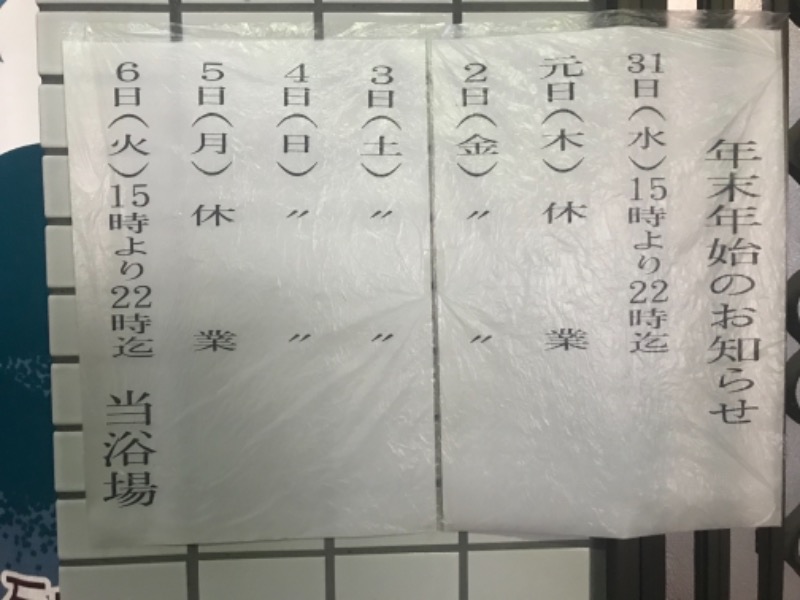 年末年始のお知らせ
31日(水)15時より22時迄
元日(木)休業
2日(金)〃〃
3日(土)〃〃
4日(日)〃〃
5日(月)休業
6日(火)15時より22時迄
当浴場